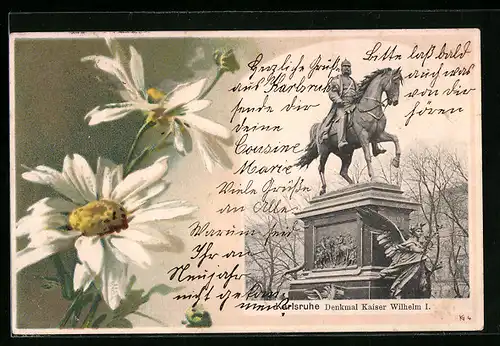 Herzliche Grüße
aus Karlsruhe
sende dir
deine
Cousine
Marie
Viele Grüße
an Alle
Warum sein
Ihr an
Neujahr
nicht gekom
men?
Bitte laß bald
auch was
von dir
hören
Karlsruhe Denkmal Kaiser Wilhelm I.